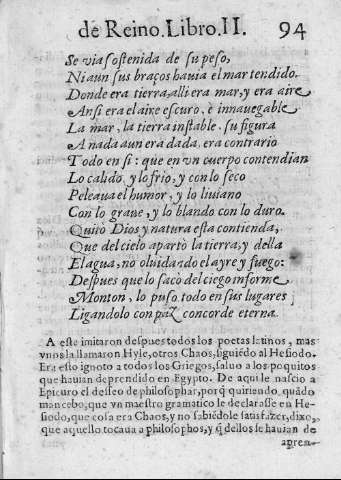 de Reino. Libro. II. 94
Se via sostenida de su peso,
Ni aun sus braços hauia el mar tendido.
Donde era tierra, alli era mar, y era aire
Ansi era el aire escuro, e innauegable
La mar, la tierra instable. su figura
A nada aun era dada, era contrario
Todo en si: que en vn cuerpo contendian
Lo calido, y lo frio, y con lo seco
Peleaua el humor, y lo liuiano
Con lo graue, y lo blando con lo duro.
Quitò Dios y natura esta contienda,
Que del cielo apartò la tierra, y della
El agua, no oluidando el ayre y fuego:
Despues que lo sacò del ciego informe
Monton, lo puso todo en sus lugares
Ligandolo con paz concorde eterna.
A este imitaron despues todos los poetas latinos, mas
vnos la llamaron Hyle, otros Chaos, siguiẽdo al Hesiodo.
Era esto ignoto a todos los Griegos, saluo a los poquitos
que hauian deprendido en Egypto. De aqui le nascio a
Epicuro el desseo de philosophar, porq̃ quiriendo, quãdo
mancebo, que vn maestro gramatico le declarasse en He-
siodo, que cosa era Chaos, y no sabiẽdole satisfazer, dixo,
que aquello tocaua a philosophos, y q̃ dellos se hauian de
apren-